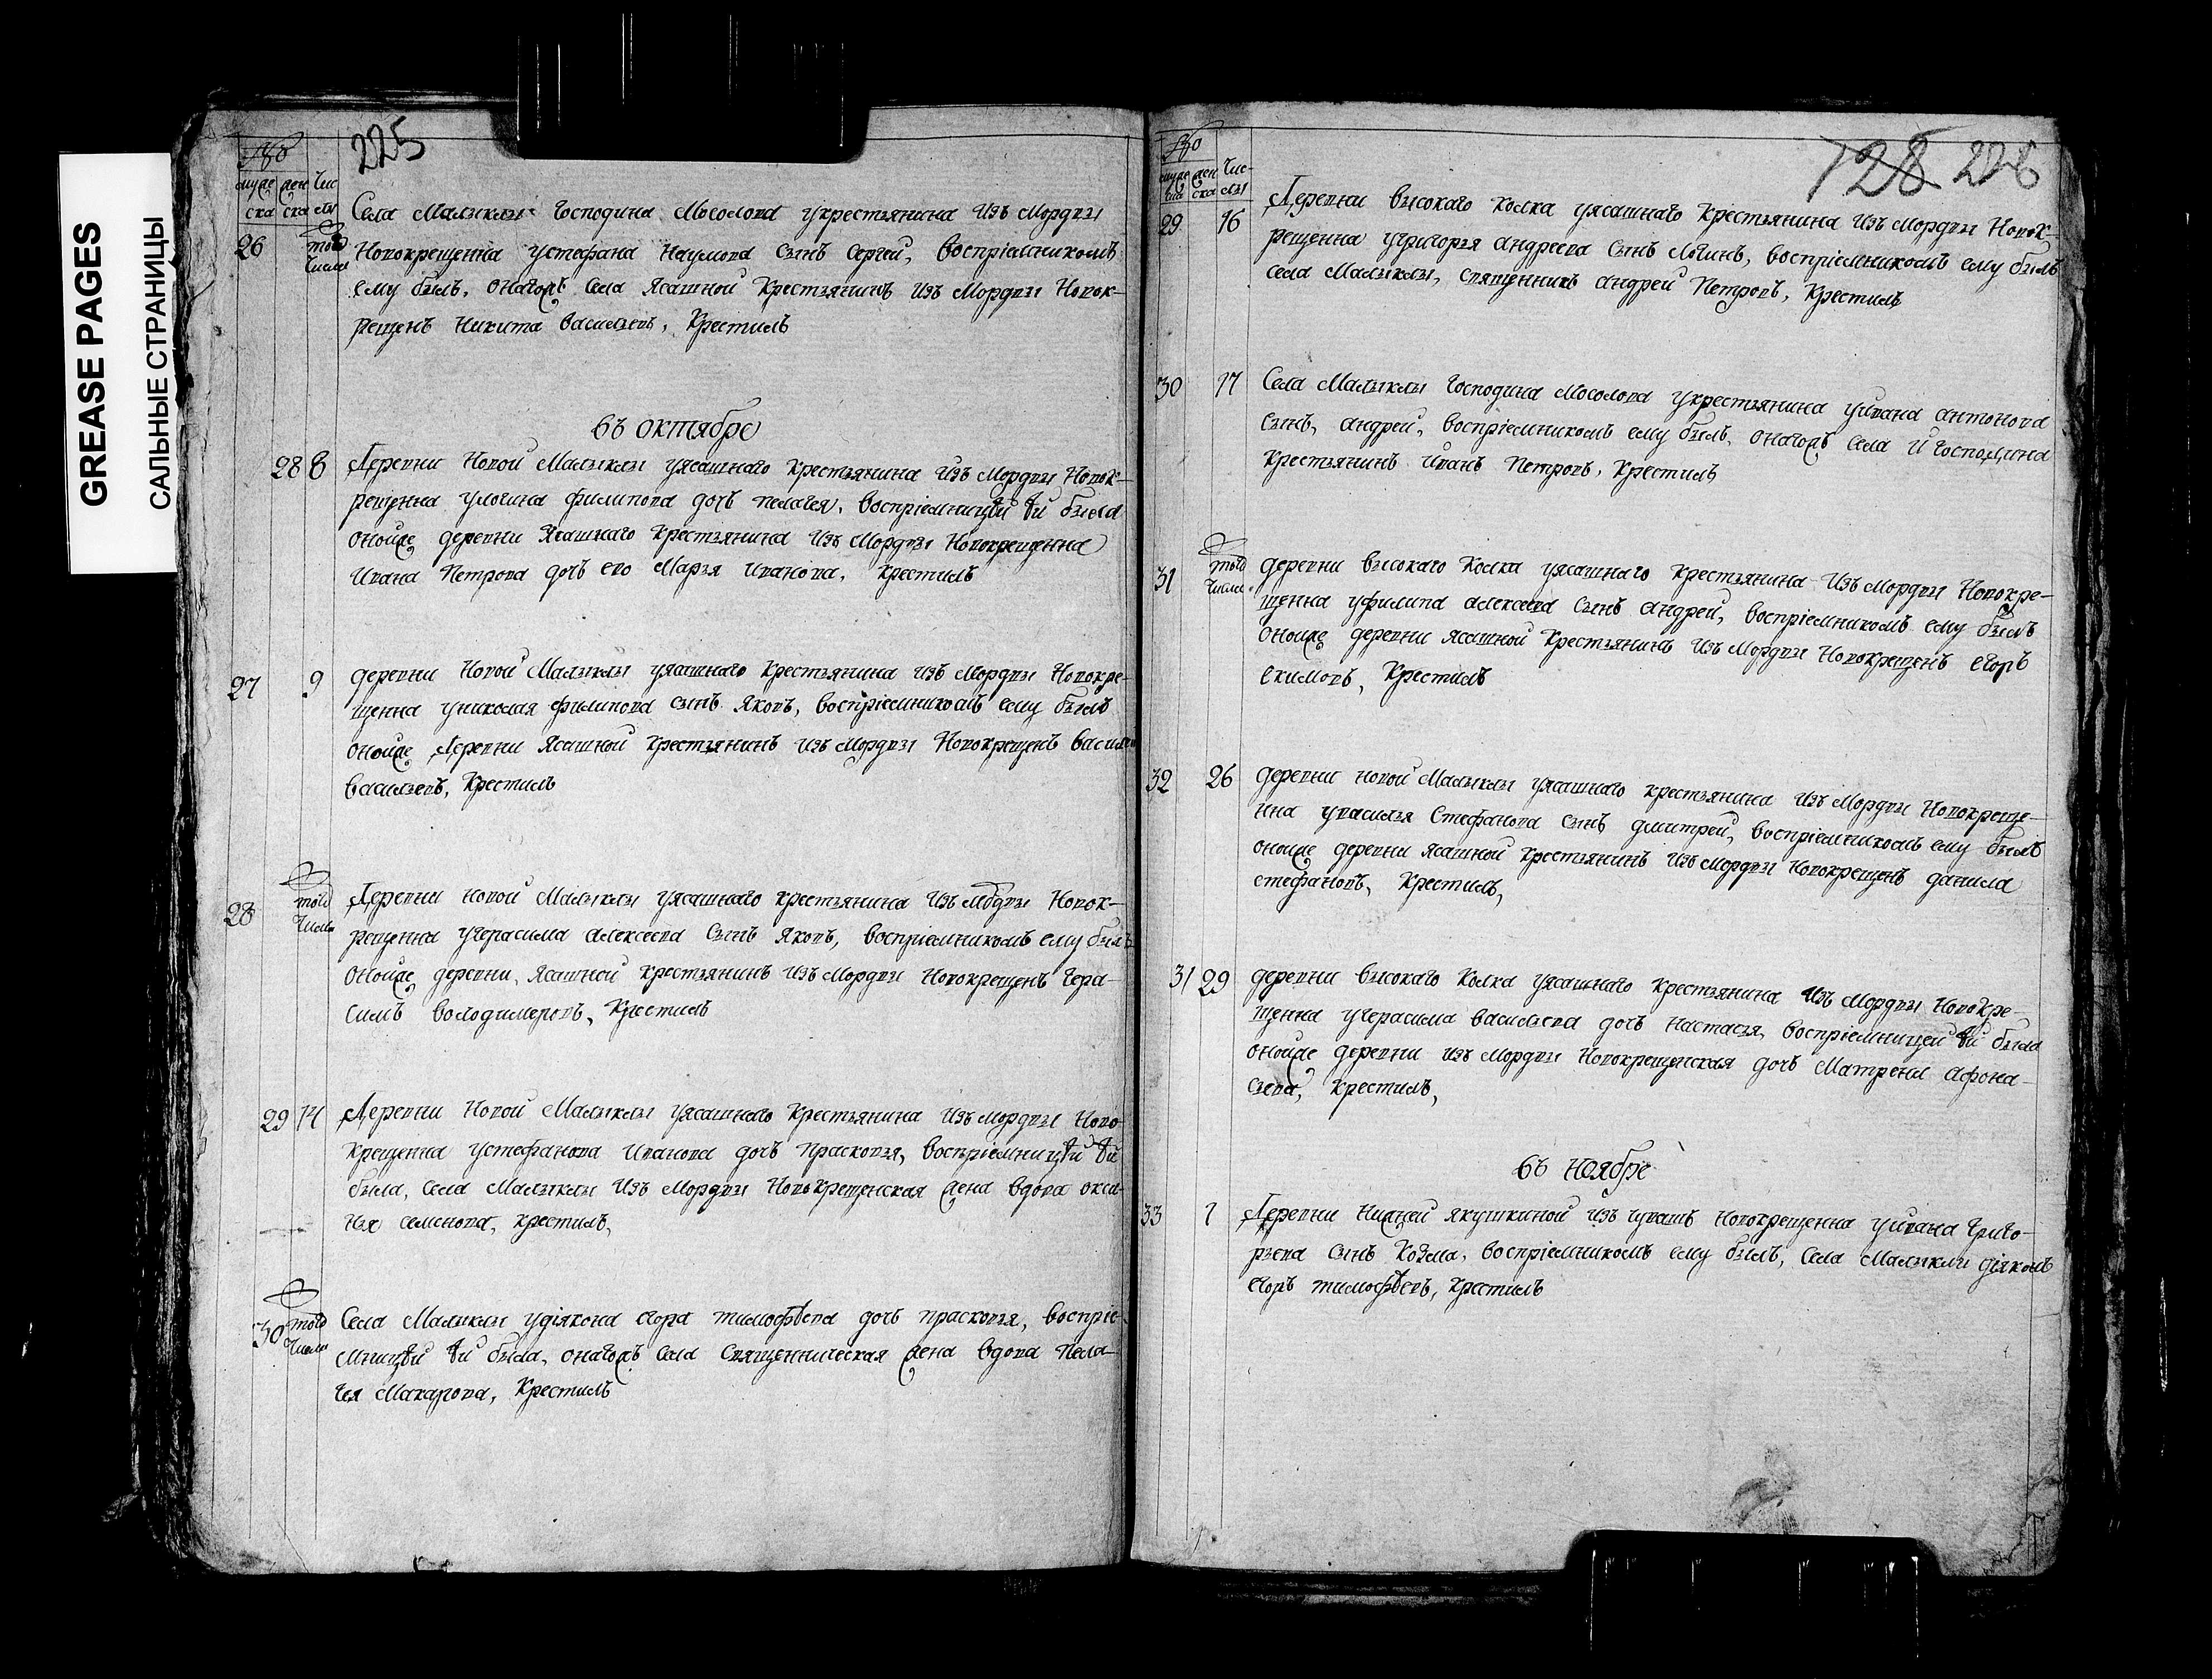 GREASE PAGES
САЛЬНЫЕ СТРАНИЦЫ
225
муже жен Чис
ска ска лы
Села Малыклы Господина Мосолова укрестьянина Изъ Мордвы
26 того числа Новокрещенна устефана Наумова Сынъ Сергей, Воспріемникомъ
ему былъ, онагожъ Села Ясашной Крестьянинъ Изъ Мордвы Новок-
рещенъ Никита Васильевъ, Крестилъ
Въ октябре
28 8 Деревни Новой Малыклы уясашнаго крестьянина Изъ Мордвы Новок-
рещенна улогина филипова дочь пелагея, Воспріемницѣй ѣй была
оноиже деревни Ясашнаго крестьянина Изъ Мордвы Новокрещенна
Ивана Петрова дочь его Марья Иванова, крестилъ
27 9 деревни Новой Малыклы уясашнаго крестьянина изъ Мордвы Новокре-
щенна униколая филипова сынъ Яковъ, воспріемникомъ ему былъ
оноиже Деревни Ясашной крестьянинъ изъ Мордвы Новокрещенъ Василей
васильевъ, Крестилъ
28 того числа Деревни новой Малыклы уясашнаго крестьянина Изъ Модвы Новок-
рещенна угерасима алексеева Сынъ Яковъ, воспріемникомъ ему былъ
оноиже деревни, Ясашной крестьянинъ изъ Мордвы Новокрещенъ Гера-
симъ володимеровъ, Крестилъ
29 14 Деревни Новой Малыклы уясашнаго Крестьянина Изъ Мордвы Ново-
крещенна устефанова Иванова дочь Прасковья, Воспріемницѣй ѣй
была, Села Малыклы Изъ Мордвы Новокрещенская жена вдова окси-
нья семенова, крестилъ,
30 того числа Села Малыклы удіякона егора тимофѣева дочь прасковья, воспріе-
мницѣй ѣй была, онагожъ Села Священническая жена вдова Пела-
гея Макарова, Крестилъ
128 226
муже жен Чис-
ска ска лы
29 16 Деревни высокаго колка уясашнаго крестьянина Изъ Мордвы Новок-
рещенна угригорья андреева Сынъ Логинъ, воспріемникомъ ему былъ
села Малыклы, священникъ андрей Петровъ, Крестилъ
30 17 Села Малыклы Господина Мосолова укрестьянина уивана антонова
Сынъ, андрей, Воспріемникомъ ему былъ, онагожъ Села И Господина
Крестьянинъ Иванъ Петровъ, Крестилъ
31 того числа деревни высокаго Колка уясашнаго крестьянина Изъ Мордвы Новокре-
щенна уфилипа алексеева Сынъ андрей, воспріемникомъ ему былъ
оноиже деревни ясашной Крестьянинъ Изъ Мордвы Новокрещенъ егоръ
екимовъ, Крестилъ
32 26 деревни новой Малыклы уясашнаго крестьянина Изъ Мордвы Новокреще-
нна увасилья Стефанова Сынъ дмитрей, воспріемникомъ ему былъ
оноиже деревни ясашной крестьянинъ Изъ Мордвы Новокрещенъ данила
стефановъ, Крестилъ,
31 29 деревни высокаго Колка уясашнаго крестьянина Изъ Мордвы Новокре-
щенна угерасима васильева дочь настасья, воспріемницей ѣй была
оноиже деревни изъ Мордвы Новокрещенская дочь Матрена афона-
сьева, крестилъ,
Въ Ноябре
33 1 Деревни Нижней якушкиной изъ чувашъ Новокрещенна уивана григо-
рьева сынъ Козма, воспріемникомъ ему былъ, Села Малыклы діяконъ
егоръ тимофѣевъ, Крестилъ